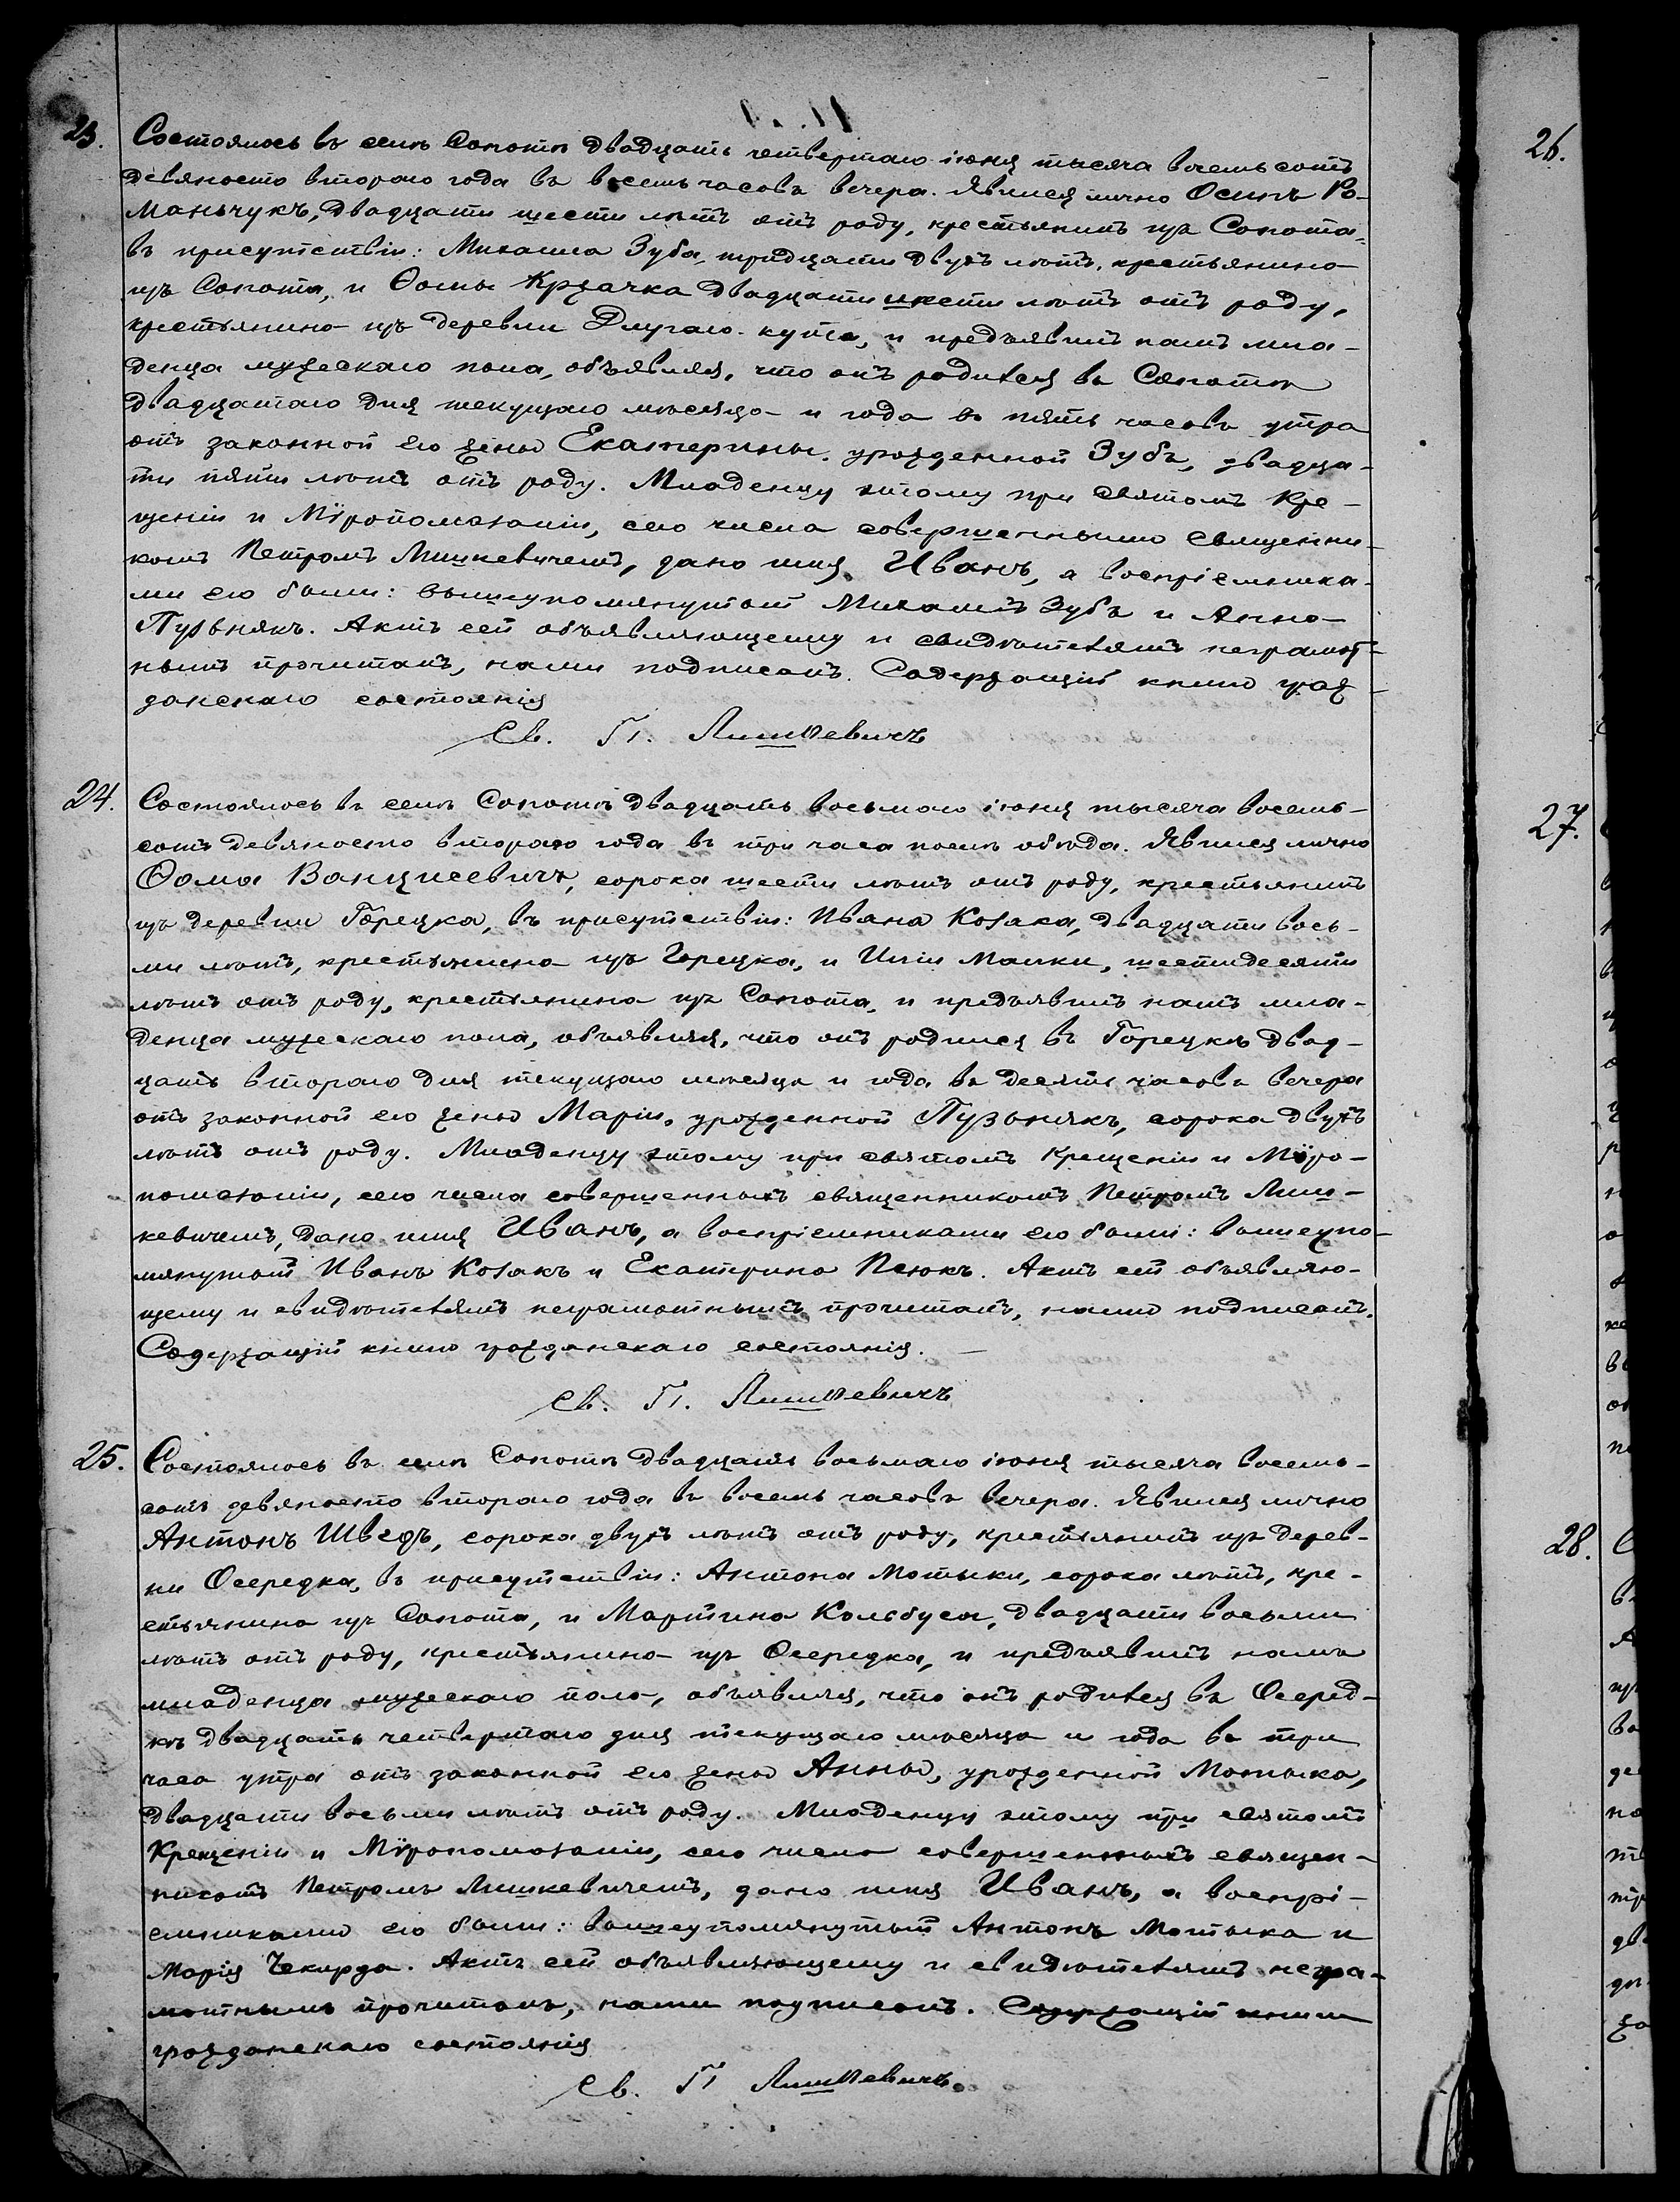 23. Состоялось въ селѣ Сопотѣ двадцать четвертаго іюня тысяча восемьсотъ
девяносто втораго года въ восемь часовъ вечера. Явился лично Осипъ Ро-
маньчукъ, двадцати шести лѣтъ отъ роду, крестьянинъ изъ Сопота,
въ присутствіи: Михаила Зуба, тридцати двухъ лѣтъ, крестьянина
изъ Сопота, и Ѳомы Крзачка двадцати шести лѣтъ отъ роду,
крестьянина изъ деревни Длугаго-кута, и предъявилъ намъ мла-
денца мужескаго пола, объявляя, что онъ родился въ Сопотѣ
двадцатаго дня текущаго мѣсяца и года въ пять часовъ утра
отъ законной его жены Екатерины, урожденной Зубъ, двадца-
ти пяти лѣтъ отъ роду. Младенцу этому при святомъ Кре-
щеніи и Мѵропомазаніи, сего числа совершенными священни-
комъ Петромъ Лишкевичемъ, дано имя Иванъ, а воспріемника-
ми его были: вышеупомянутый Михаилъ Зубъ и Анна
Пузьнякъ. Актъ сей объявляющему и свидѣтелямъ неграмот-
нымъ прочитанъ, нами подписанъ. Содержащій книги граж-
данскаго состоянія
Св. П. Лишкевичъ
24. Состоялось въ селѣ Сопотѣ двадцать восьмаго іюня тысяча восемь-
сотъ девяносто втораго года въ три часа послѣ обѣда. Явился лично
Ѳома Ванцисевичъ, сорока шести лѣтъ отъ роду, крестьянинъ
изъ деревни Горецка, въ присутствіи: Ивана Козака, двадцати вось-
ми лѣтъ, крестьянина изъ Горецка, и Иліи Малки, шестидесяти
лѣтъ отъ роду, крестьянина изъ Сопота, и предъявилъ намъ мла-
денца мужескаго пола, объявляя, что онъ родился въ Горецкѣ двад-
цать втораго дня текущаго мѣсяца и года въ десять часовъ вечера
отъ законной его жены Маріи, урожденной Пузьнякъ, сорока двухъ
лѣтъ отъ роду. Младенцу этому при святомъ Крещеніи и Мѵро-
помазаніи, сего числа совершенныхъ священникомъ Петромъ Лиш-
кевичемъ, дано имя Иванъ, а воспріемниками его были: вышеупо-
мянутый Иванъ Козакъ и Екатерина Псюкъ. Актъ сей объявляю-
щему и свидѣтелямъ неграмотнымъ прочитанъ, нами подписанъ.
Содержащій книги гражданскаго состоянія.
Св. П. Лишкевичъ
25. Состоялось въ селѣ Сопотѣ двадцать восьмаго іюня тысяча восемь-
сотъ девяносто втораго года въ восемь часовъ вечера. Явился лично
Антонъ Шведъ, сорока двухъ лѣтъ отъ роду, крестьянинъ изъ дерев-
ни Осередка, въ присутствіи: Антона Мотыки, сорока лѣтъ, кре-
стьянина изъ Сопота, и Мартина Кольбуса, двадцати восьми
лѣтъ отъ роду, крестьянина изъ Осередка, и предъявилъ намъ
младенца мужескаго пола, объявляя, что онъ родился въ Осеред-
кѣ двадцать четвертаго дня текущаго мѣсяца и года въ три
часа утра отъ законной его жены Анны, урожденной Мотыка,
двадцати восьми лѣтъ отъ роду. Младенцу этому при святомъ
Крещеніи и Мѵропомазаніи, сего числа совершенныхъ священ-
никомъ Петромъ Лишкевичемъ, дано имя Иванъ, а воспрі-
емниками его были: вышеупомянутый Антонъ Мотыка и
Марія Чекирда. Актъ сей объявляющему и свидѣтелямъ негра-
мотнымъ прочитанъ, нами подписанъ. Содержащій книги
гражданскаго состоянія
Св. П Лишкевичъ.
26.
27.
28.